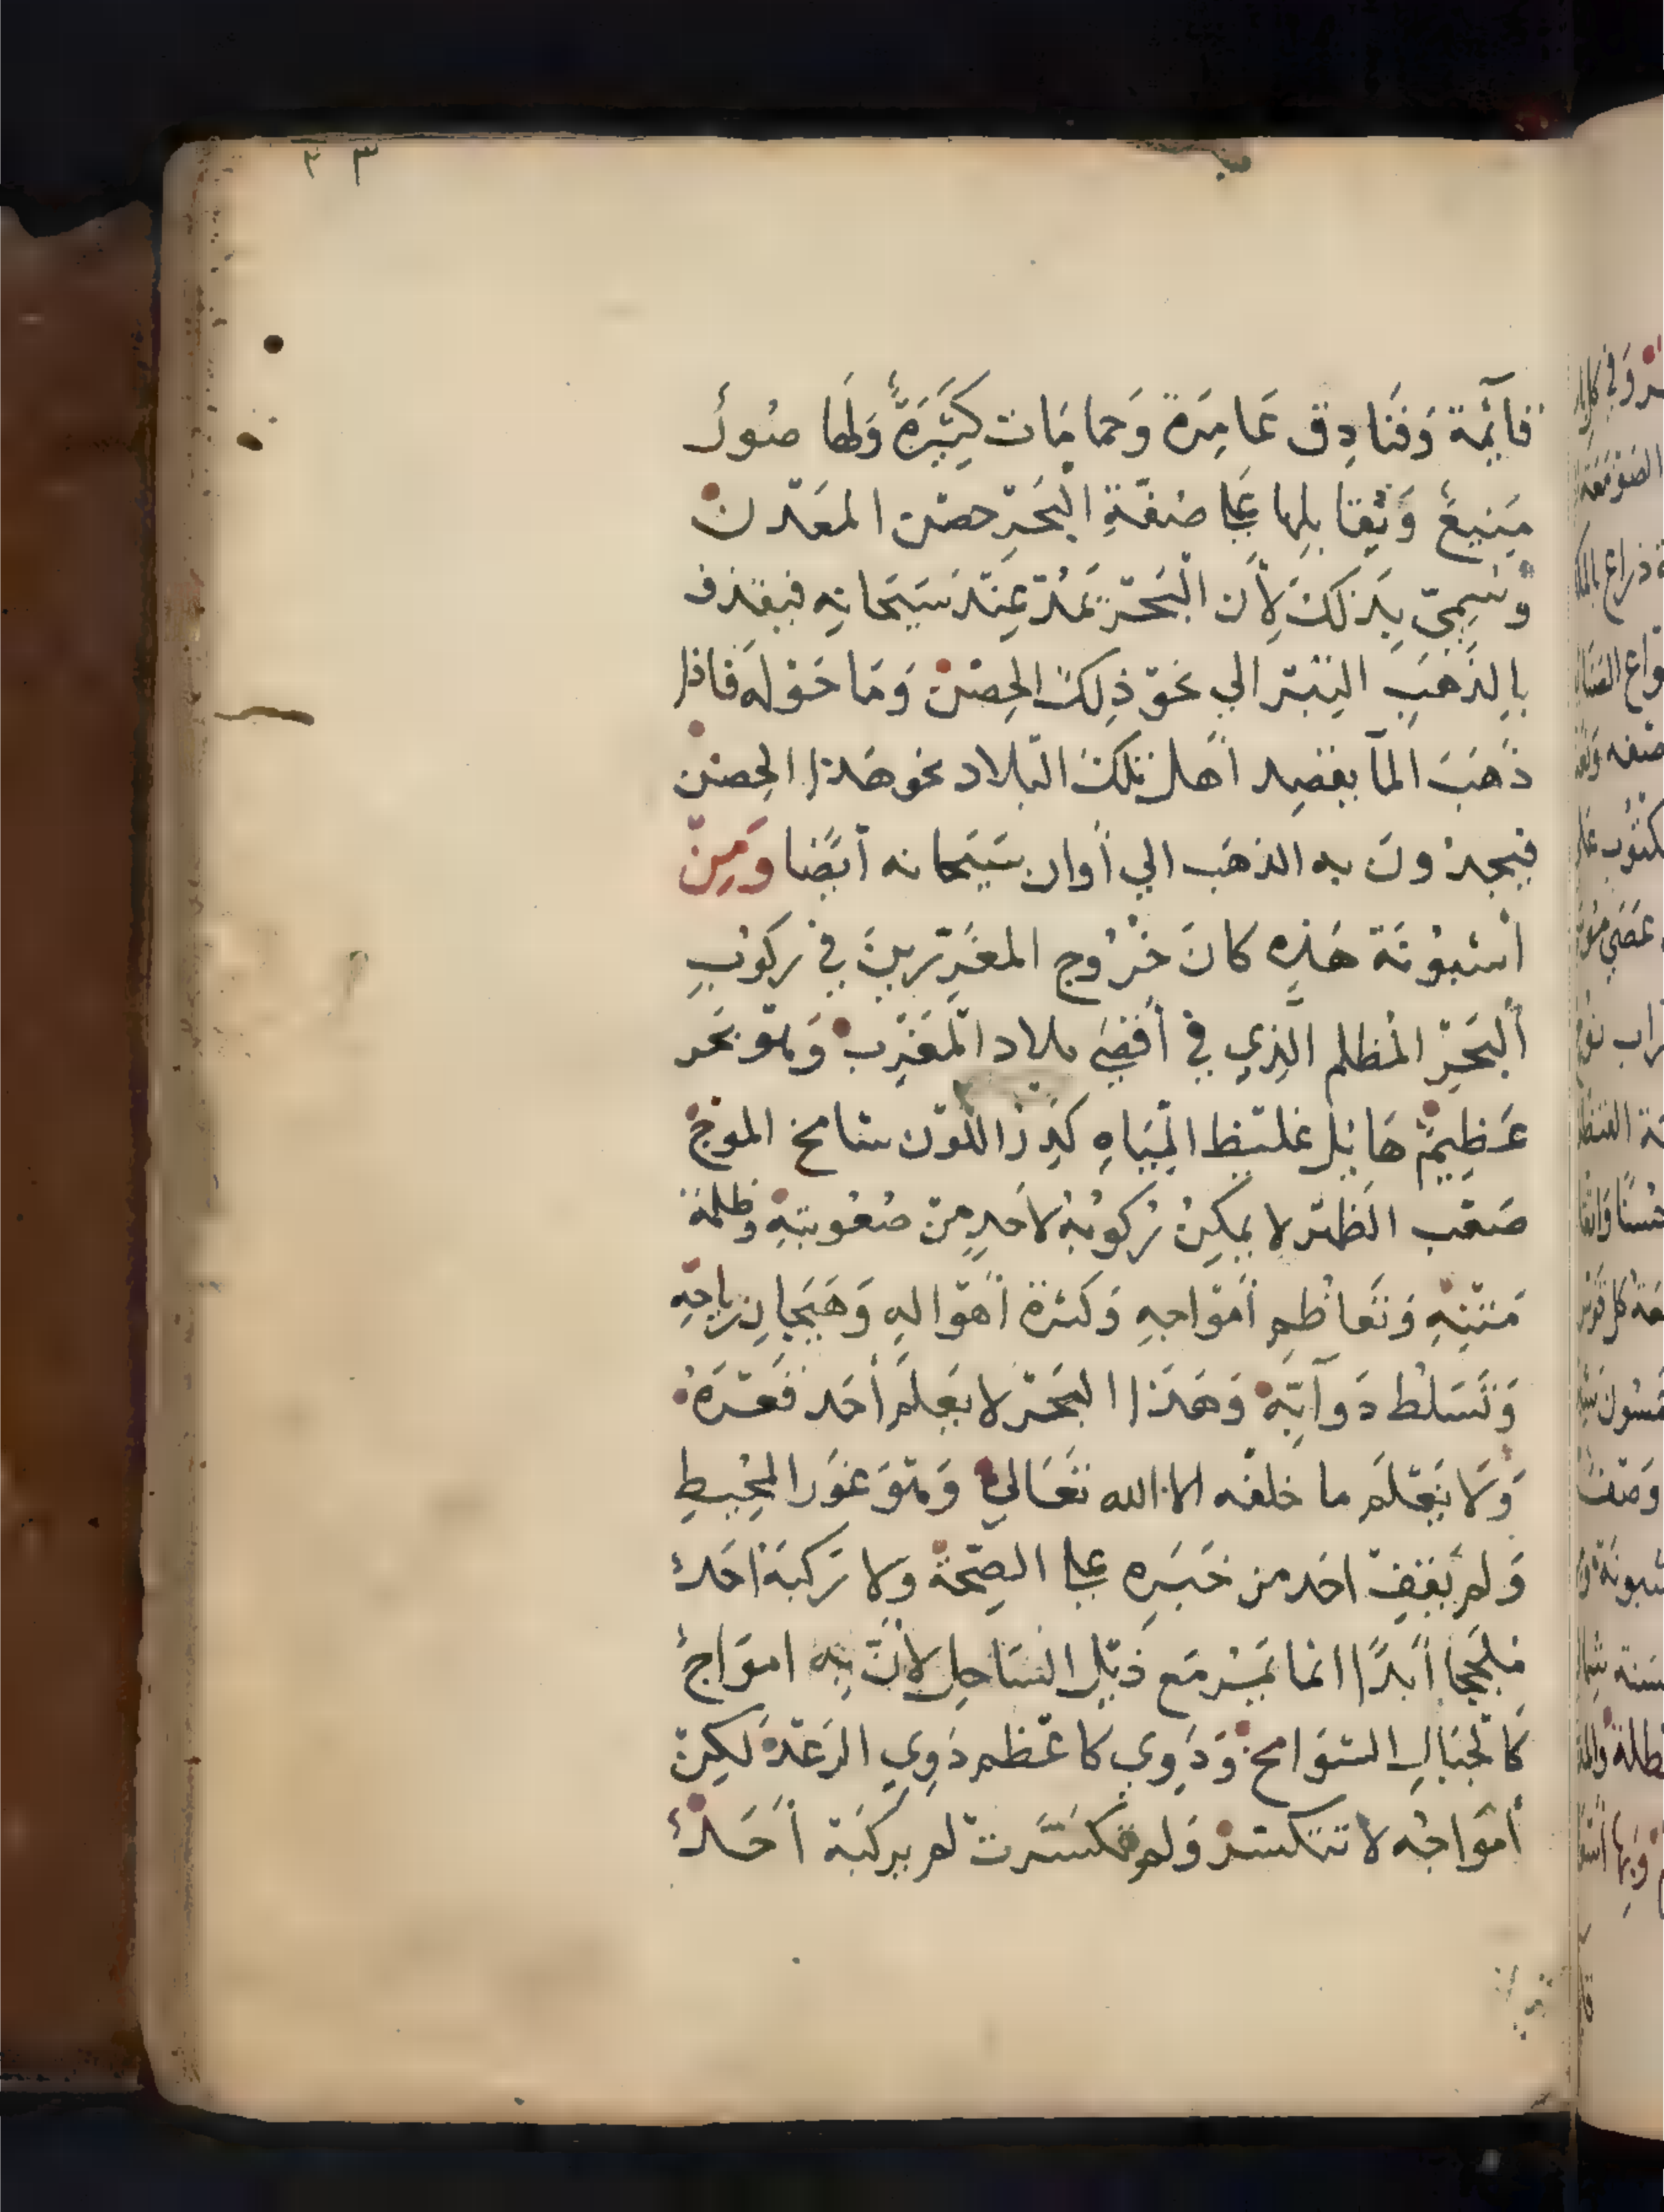 ٣٣
قائمة وَفَنَادِق عَامِرَة وَحمامَات كَثيَرَةٌ وَلَها صُورٌ
مَنِيعٌ وَيُقَابلها عَلى ضفّةِ البَحَرِ حصْن المعَدن
وَسُمِيّ بِذَلكَ لِأَن البَحْر يَمُدّ عِنْدَ سَيَحَانِهِ فيقذف
بالذَهَبِ التبر الي نحَو ذِلكَ الحِصْن وَمَا حَوْله فاذا
ذَهَبَ المآ يقصِد أهل تلكَ البلاد نحو هَذا الحِصْن
فيجدُونَ به الذهَب الي أوان سَيَحانه أيضًا وَمِنْ
أشبُونَة هَذِه كانَ خُرُوج المغَرّرِينَ في ركوُبِ
ألبَحْرِ المُظلم الَذِي في أقصَي بلاد المَغْرِب وَهْوَ بَحَر
عَظِيمٌ هَايِل غليَظ المِيَاهِ كَدِرُ اللَوْن شامخ الموجْ
صَعْب الظهْر لا يمكِنُ رُكوُبُهُ لاحَدٍ مِنْ صُعُوبتِهِ وظلمة
مَتْنِهِ وَتَعاظُمِ أمْوَاجِهِ وَكثرة أهْوَالِهِ وَهَيَجَانِ رِيَاحِهِ
وَتَسَلطُ دَوآبِّهِ وَهَذا البَحَرْ لا يَعلَم أحَد قَعْرَهُ
وَلَا يَعْلَم ما خلفه الا الله تَعَالي وَهْوَ غَوَر المُحِيطِ
وَلم يَقِفْ احَد من خَبَرِه على الصِحّة ولا رَكبَهُ احَدٌ
مُلَجِجا أبَدًا انما يَمُرْ مَع ذَيْلِ السَاحِلِ لأنَّ بِه اموَاجٌ
كَالجبَالِ الشوَامخ وَدَوِي كاعْظم دَوِيِ الرَعْدْ لكِنْ
أموَاجُه لا تتكسَر وَلو تكسَّرت لم يركَبَهُ أَحَدٌ